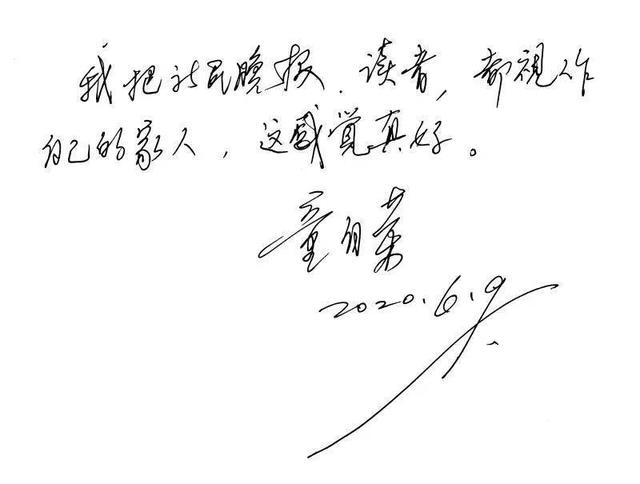 我把新民晚报、读者，都视作
自己的家人，这感觉真好。
童自荣
2020.6.9